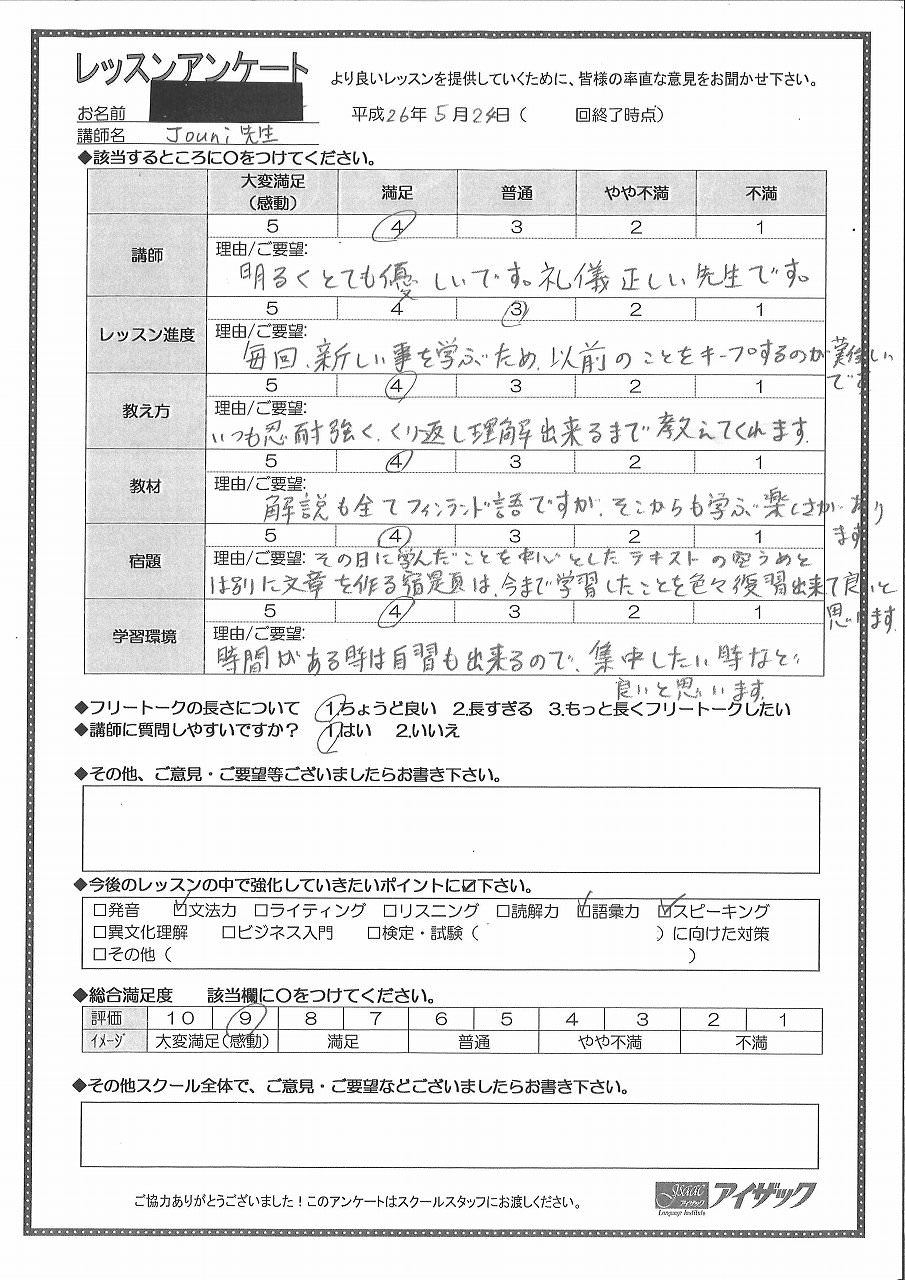 レッスンアンケート
より良いレッスンを提供していくために、皆様の率直な意見をお聞かせ下さい。
お名前
平成26年5月24日( 回終了時点)
講師名 Jouni先生
◆該当するところに〇をつけてください。
大変満足(感動) 満足 普通 やや不満 不満
講師
5 4 3 2 1
理由/ご要望:
明るくとても優しいです。礼儀正しい先生です。
レッスン進度
5 4 3 2 1
理由/ご要望:
毎回、新しい事を学ぶため、以前のことをキープするのが難しい
です
教え方
5 4 3 2 1
理由/ご要望:
いつも忍耐強く、くり返し理解出来るまで教えてくれます。
教材
5 4 3 2 1
理由/ご要望:
解説も全てフィンランド語ですが、そこからも学ぶ楽しさがあり
ます
宿題
5 4 3 2 1
理由/ご要望: その日に学んだことを中心としたテキストの空うめと
は別に文章を作る宿題は、今まで学習したことを色々復習出来て良いと
思います
学習環境
5 4 3 2 1
理由/ご要望:
時間がある時は自習も出来るので、集中したい時など
良いと思います。
◆フリートークの長さについて 1.ちょうど良い 2.長すぎる 3.もっと長くフリートークしたい
◆講師に質問しやすいですか? 1.はい 2.いいえ
◆その他、ご意見・ご要望等ございましたらお書き下さい。
◆今後のレッスンの中で強化していきたいポイントに☑下さい。
□発音 ☑文法力 □ライティング □リスニング □読解力 ☑語彙力 ☑スピーキング
□異文化理解 □ビジネス入門 □検定・試験( )に向けた対策
□その他( )
◆総合満足度 該当欄に〇をつけてください。
評価 10 9 8 7 6 5 4 3 2 1
イメージ 大変満足(感動) 満足 普通 やや不満 不満
◆その他スクール全体で、ご意見・ご要望などございましたらお書き下さい。
ご協力ありがとうございました!このアンケートはスクールスタッフにお渡しください。
ISAAC アイザック Language Institute アイザック